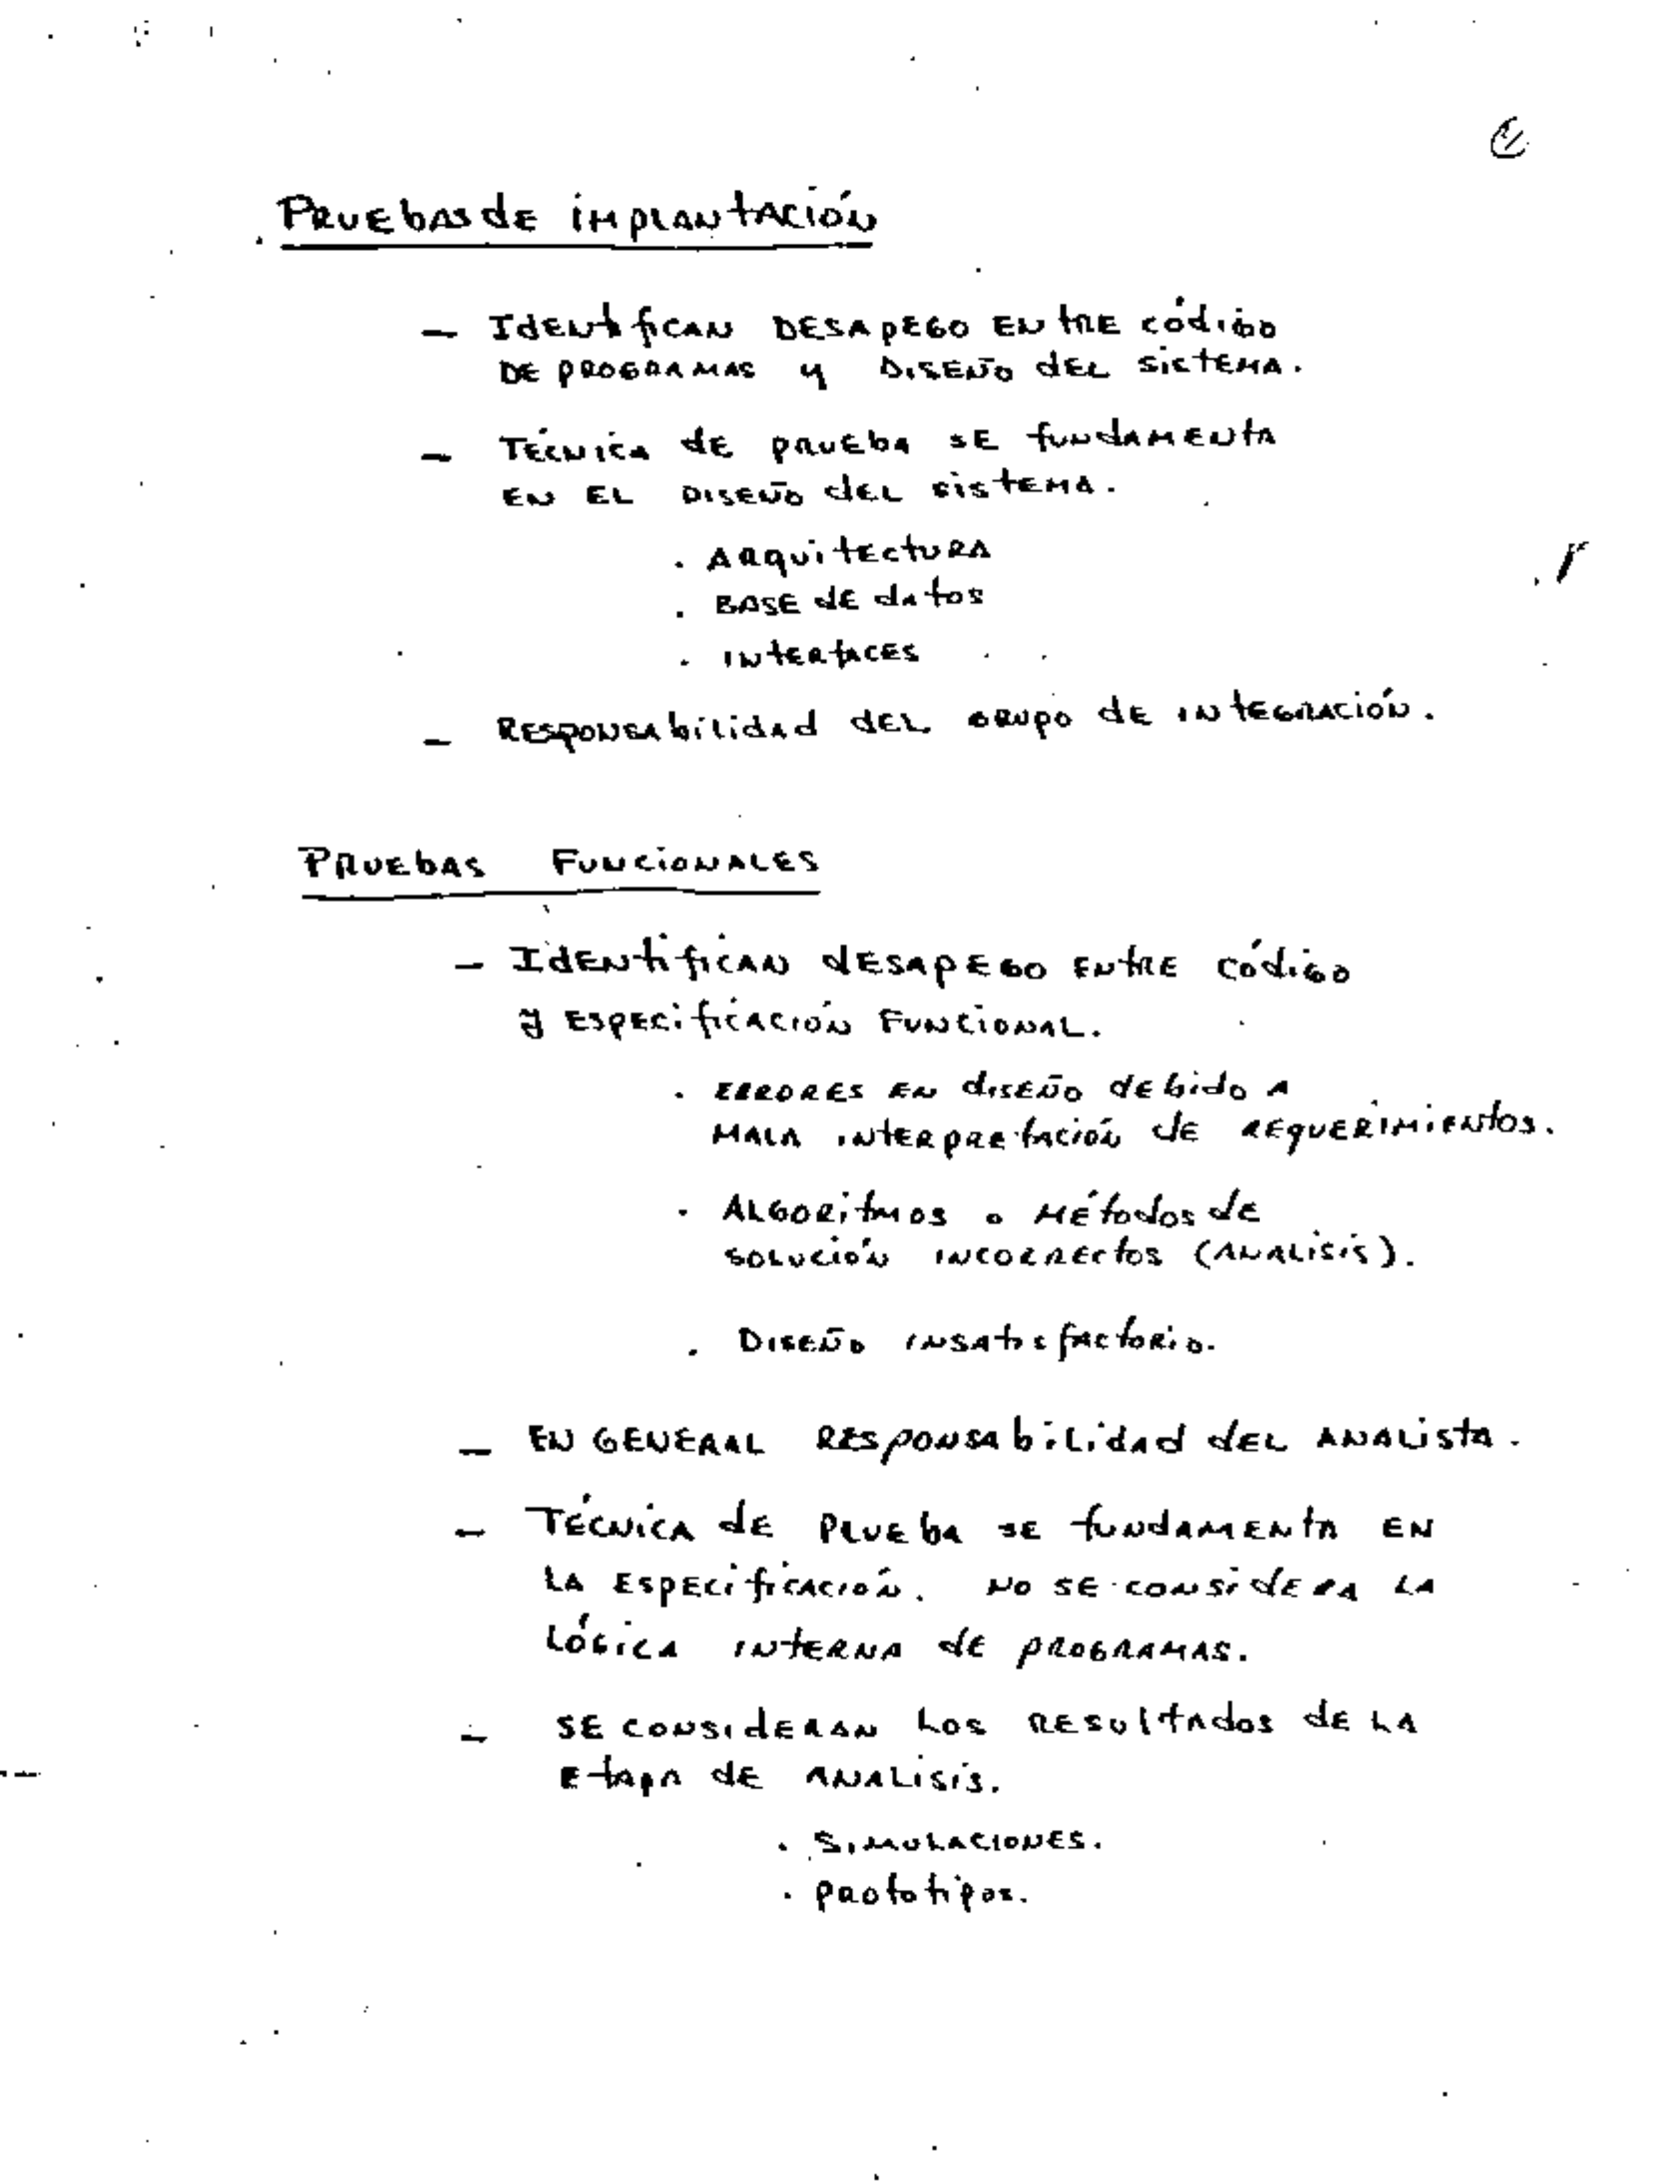 PRUEbAS dE iMPLANtACióN
- IdENtifiCAN DESAPEGO ENtRE CódiGO
DE PROGRAMAS y DiSEÑO dEL SiStEMA.
- TÉCNiCA dE PRUEbA SE fuNdAMENtA
EN EL DiSEÑO dEL SiStEMA.
. ARquitECtuRA
. BASE dE dAtOS
. INtERfACES
- RESPONSAbilidAd dEL GRUPO dE iNtEGRACióN.
PRUEbAS FUNCiONALES
- IdENtifiCAN dESAPEGO ENtRE CódiGO
y ESPECifiCACióN FUNCiONAL.
. ERRORES EN diSEÑO dEbido A
MALA iNtERPREtACióN dE REquERiMiENtos.
. ALGORitMOS o MÉtodos dE
SOLUCióN iNCORRECtos (ANALiSiS).
. DiSEÑO iNSAtiSfACtoRio.
- EN GENERAL RESPONSAbiLidAd dEL ANALiStA.
- TÉCNiCA dE PRUEbA SE fuNdAMENtA EN
LA ESPECifiCACióN. NO SE CONSidERA LA
LÓGiCA iNtERNA dE PROGRAMAS.
- SE CONSidERAN LOS RESULtAdos dE LA
EtAPA dE ANALiSiS.
. SiMULACiONES.
. PROtotiPOS.